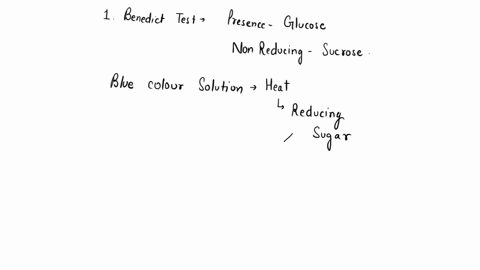 1. Benedict Test → Presence - Glucose
Non Reducing - Sucrose.
Blue colour Solution → Heat
↳ Reducing
Sugar